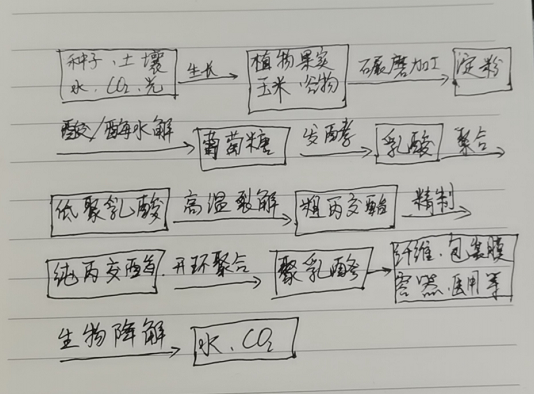 种子、土壤 生长 植物果实 碾磨加工 淀粉
水、CO₂、光 玉米、谷物
酸/酶水解 葡萄糖 发酵 乳酸 聚合
低聚乳酸 高温裂解 粗丙交酯 精制
纯丙交酯 开环聚合 聚乳酸 纤维、包装膜
容器、医用等
生物降解 水、CO₂